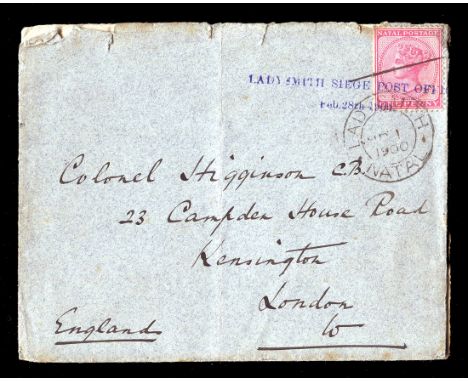 NATAL POSTAGE
LADYSMITH SIEGE POST OFFI
Feb. 28th 1900.
PENNY
LADYSMITH
1900
NATAL
Colonel Higginson C.B.
23 Campden House Road
Kensington
London
W
England